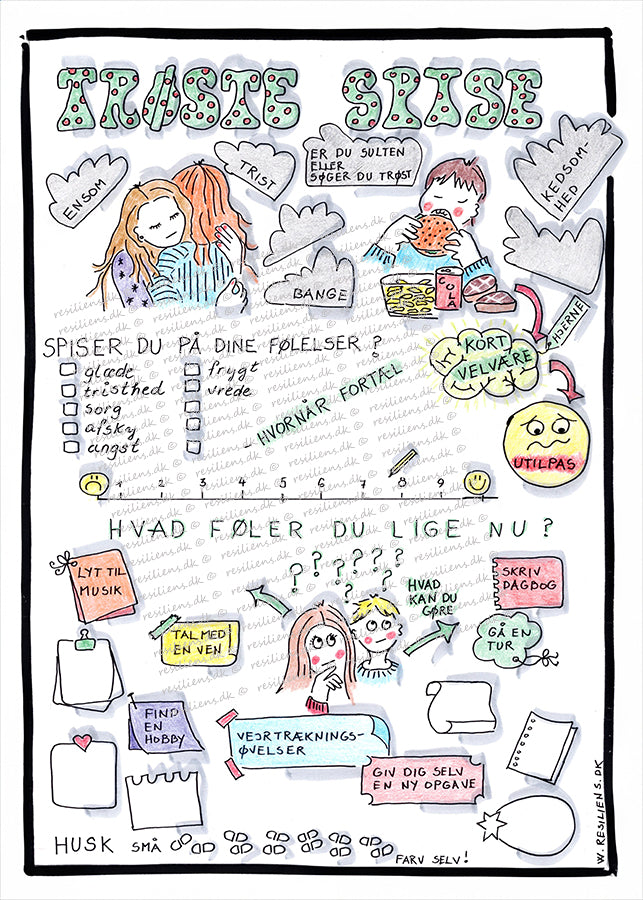 TRØSTE SPISE
ENSOM
TRIST
ER DU SULTEN
ELLER
SØGER DU TRØST
KEDSOM-
HED
BANGE
COLA
HJERNE
KORT
VELVÆRE
UTILPAS
SPISER DU PÅ DINE FØLELSER?
glæde
tristhed
sorg
afsky
angst
frygt
vrede
- HVORNÅR FORTÆL
1 2 3 4 5 6 7 8 9
HVAD FØLER DU LIGE NU?
LYT TIL
MUSIK
TAL MED
EN VEN
? ? ? ? ? ? ? ?
HVAD
KAN DU
GØRE
SKRIV
DAGBOG
GÅ EN
TUR
FIND
EN
HOBBY
VEJRTRÆKNINGS-
ØVELSER
GIV DIG SELV
EN NY OPGAVE
HUSK SMÅ
FARV SELV!
W. RESILIENS.DK
resiliens.dk ©